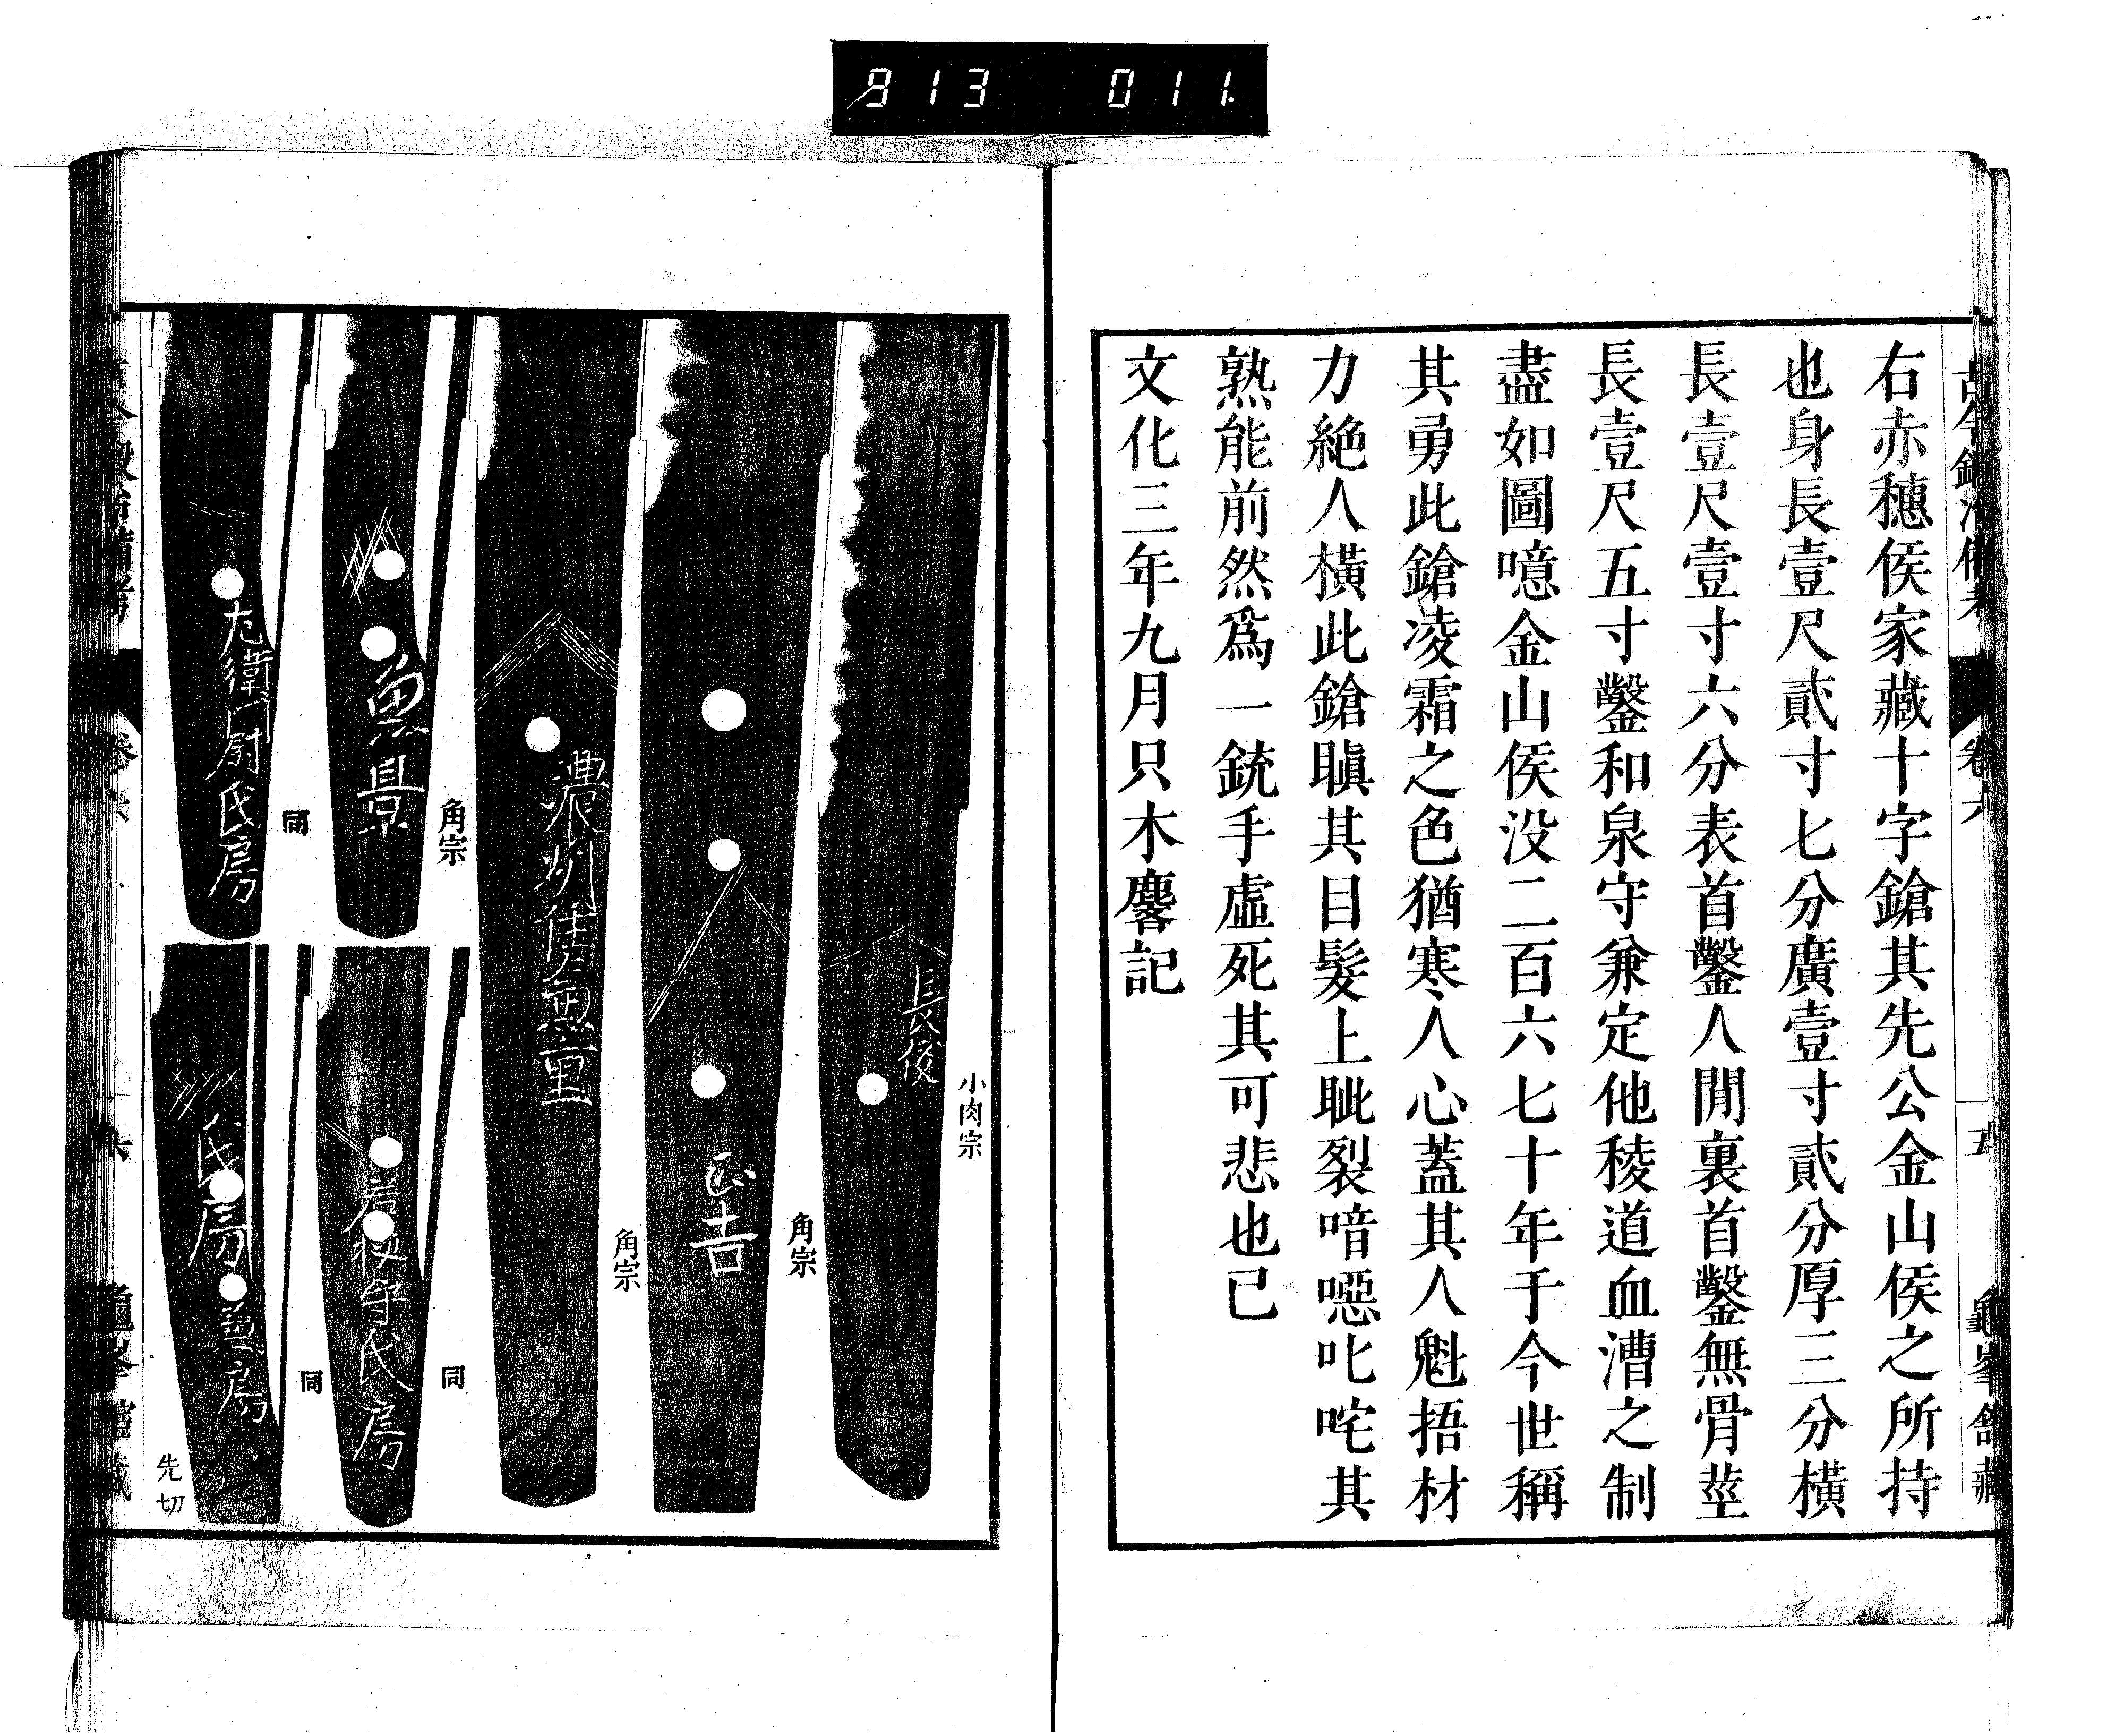 913 011.
古今鍛冶備考
卷六
五
龜峯館藏
右赤穗侯家藏十字鎗其先公金山侯之所持
也身長壹尺貳寸七分廣壹寸貳分厚三分橫
長壹尺壹寸六分表首鑿人間裏首鑿無骨莖
長壹尺五寸鑿和泉守兼定他稜道血漕之制
盡如圖噫金山侯没二百六七十年于今世稱
其勇此鎗凌霜之色猶寒人心蓋其人魁捂材
力絶人橫此鎗瞋其目髮上眦裂喑噁叱咤其
孰能前然爲一銃手虛死其可悲也已
文化三年九月只木麐記
長俊
小肉宗
正吉
角宗
濃州住兼重
角宗
兼景
角宗
左衛門尉氏房
同
若狹守氏房
同
氏房
兼房
同
先切